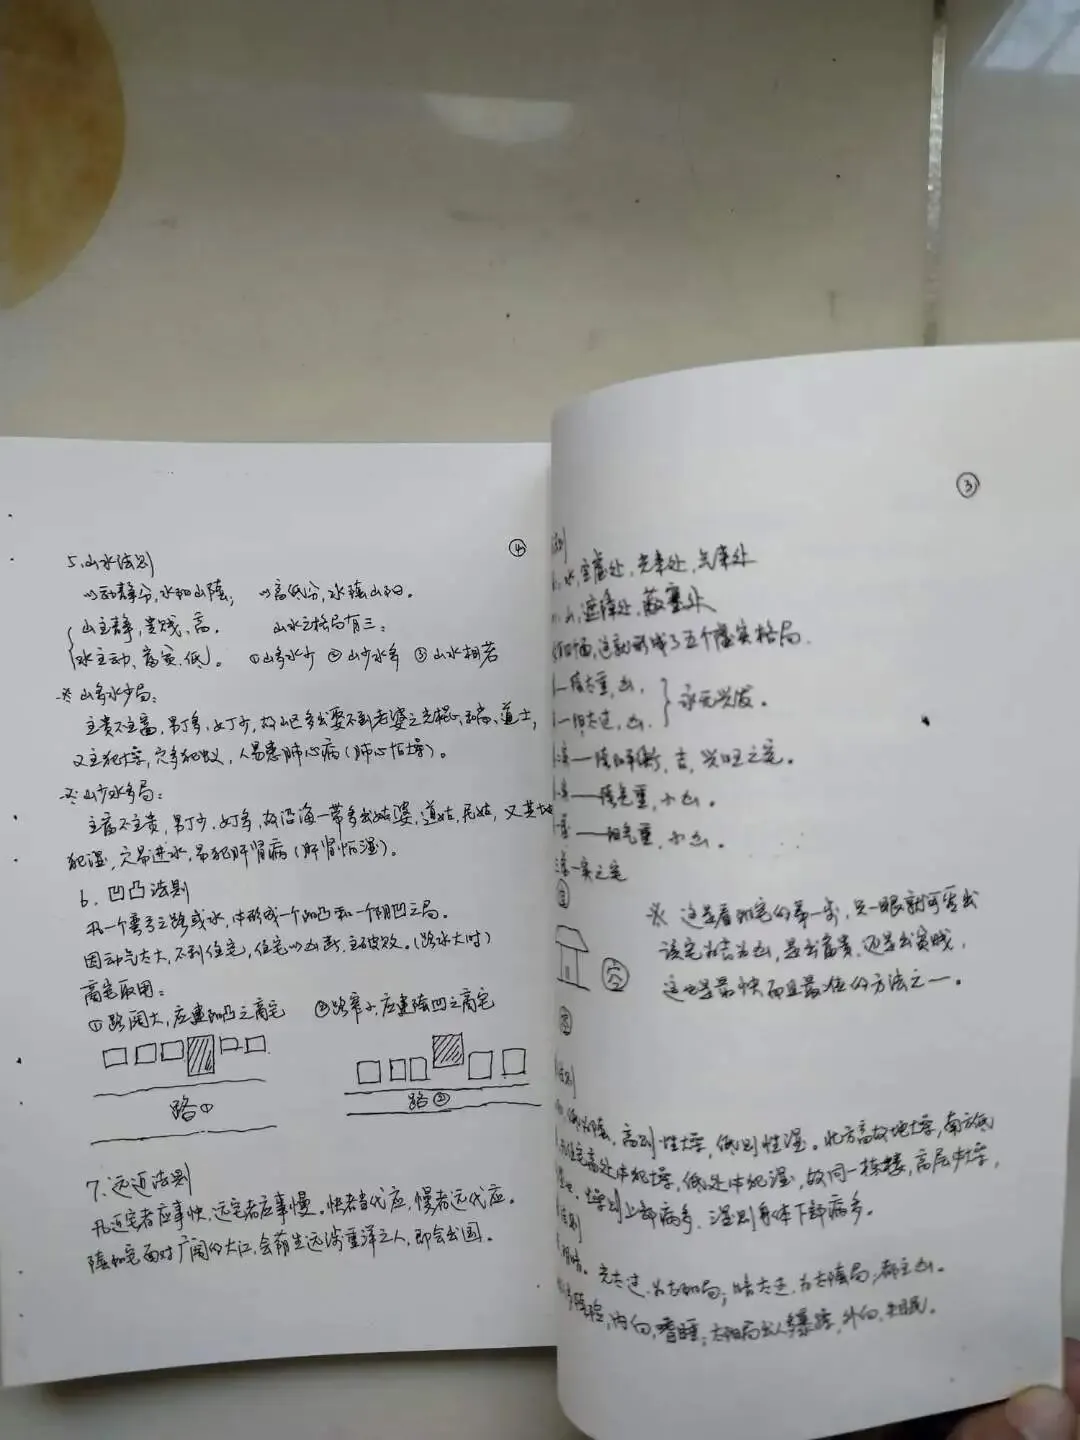 ④
5、山水法则
以动静分,水阳山阴; 以高低分,水阴山阳。
山主静,贵贱、高。 山水之格局有三:
水主动、富贫、低。 ①山多水少 ②山少水多 ③山水相若
※ 山多水少局:
主贵不主富,男丁多、女丁少,故山区多出娶不到老婆之光棍,和尚、道士,
又主犯燥,穴多犯蚁,人易患肺心病(肺心怕燥)。
※ 山少水多局:
主富不主贵,男丁少,女丁多,故沿海一带多出姑婆,道姑,尼姑,又其地
犯湿,穴易进水,易犯肝肾病(肝肾怕湿)。
6、凹凸法则
凡一个弯弓之路或水,中形成一个阳凸和一个阴凹之局。
因动气太大,不利住宅,住宅以凶断,主破败。(路水大时)
商宅取用:
①路阔大,应重阳凸之商宅 ②路窄小,应重阴凹之商宅
路① 路②
7、远近法则
凡近宅者应事快,远宅者应事慢。快者当代应,慢者远代应。
阴阳宅面对广阔的大江,会荫生远涉重洋之人,即会出国。
③
法则
水,空虚处,光亮处,气来处
山,遮障处,蔽塞处
四面,这就形成了五个虚实格局.
阴太重,凶.
阳太过,凶. 永无兴发。
阴阳平衡,吉,兴旺之宅。
阴气重,小凶。
阳气重,小凶。
三虚一实之宅
※ 这是看阳宅的第一步,只一眼就可看出
该宅为吉为凶,是出富贵,还是出贫贱,
这也是最快而且最准的方法之一。
实
法则
低为阴,高则性燥,低则性湿。北方高故地燥,南方低
住宅高处中犯燥,低处中犯湿,故同一栋楼,高层中燥,
燥则上部病多,湿则身体下部病多。
法则
明暗。光太过,为太阳局;暗太过,为太阴局,都主凶。
阴险,内向,嗜睡;太阳局出人多暴躁,外向,失眠。